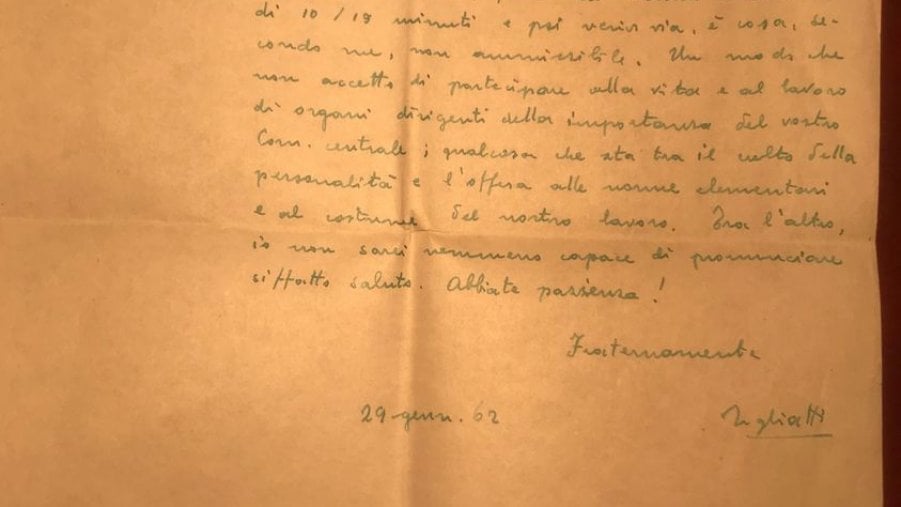 di 10/18 minuti e poi venir via, è cosa, se-
condo me, non ammissibile. Un modo che
non accetto di partecipare alla vita e al lavoro
di organi dirigenti della importanza del vostro
Com. centrale; qualcosa che sta tra il culto della
personalità e l'offesa alle norme elementari
e al costume del nostro lavoro. Tra l'altro,
io non sarei nemmeno capace di pronunciare
siffatto saluto. Abbiate pazienza!
Fraternamente
29 genn. 62
Togliatti